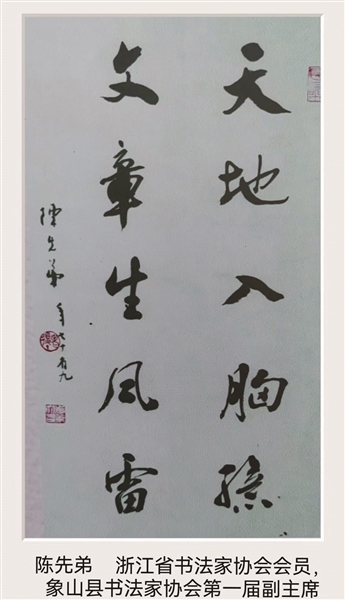 天地入胸臆
文章生风雷
陈先弟 年七十有九
陈先弟 浙江省书法家协会会员，
象山县书法家协会第一届副主席